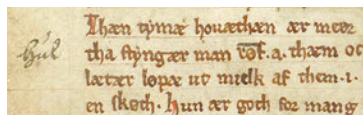 Thæn tymæ houæthæn ær meer
tha styngær man rot. a. thæm oc
lætær lopæ ut mielk af them. i.
en sketh. hun ær goth for mang